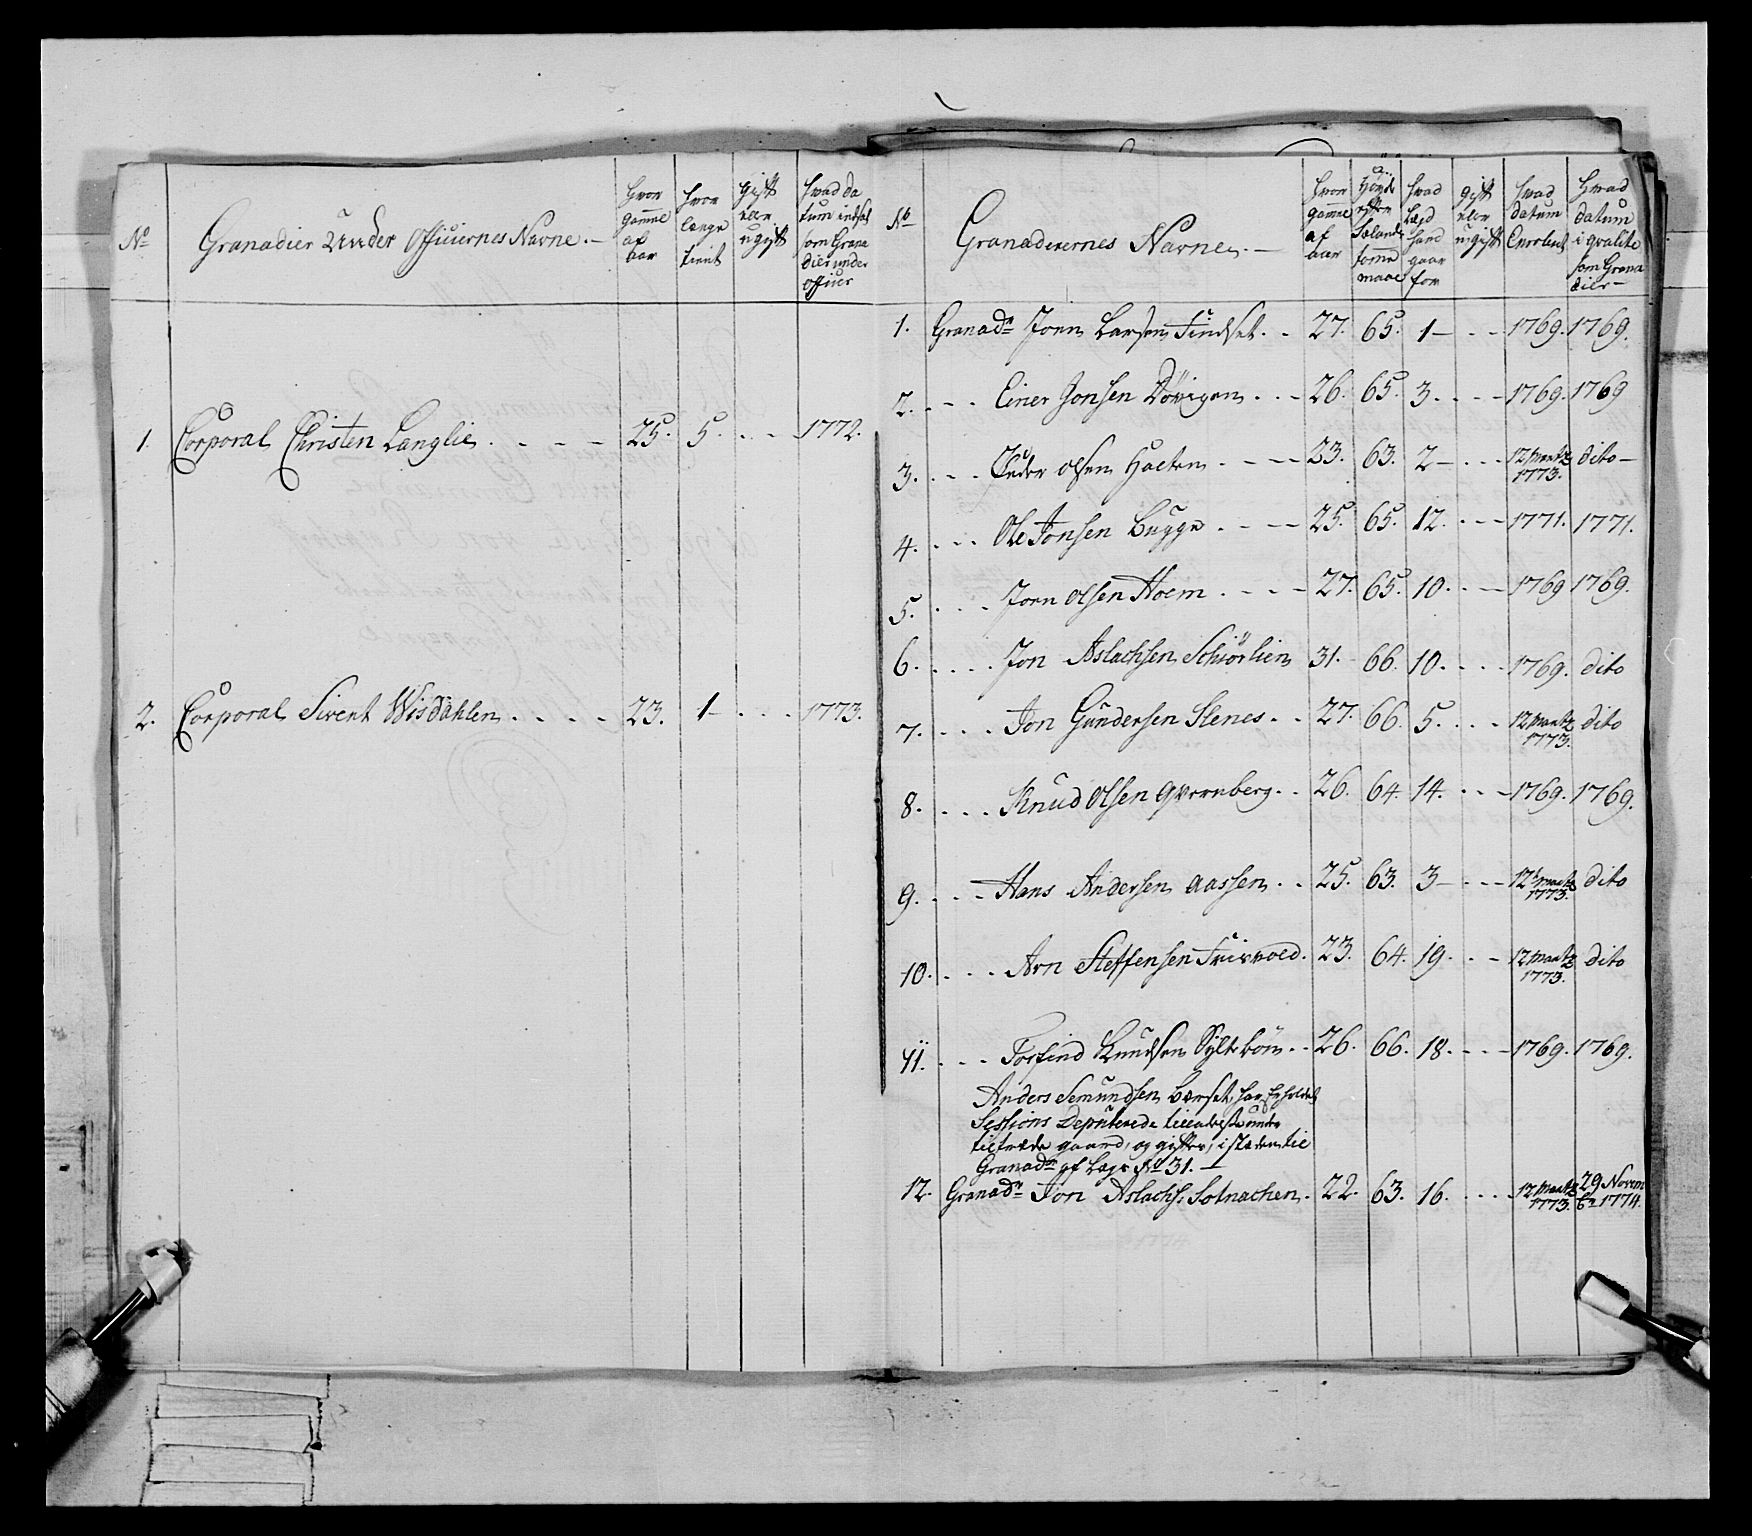 No
Granadier Under Officiernes Navne.
Hvor gamle af aar
hvor længe tient
gift eller ugift
hvad datum indsat som Granadier under officier
1. Corporal Christen Langlie. 25. 5. 1772.
2. Corporal Sivert Wisdahlen. 23. 1 1773.
No
Granaderernes Navne.
hvor gamle af aar
Høyde efter Sælands tomme maal
hvad Lægd hand gaar for
gift eller ugift
hvad datum Enrolert
Hvad datum i qvalite som Granadier
1. Granadr Joen Larsen Tindset. 27. 65. 1 1769. 1769.
2. Einer Jonsen Dövigen. 26. 65. 3. 1769. 1769
3. Peder olsen Hacten. 23. 63. 2 12 Martz 1773. dito
4. Ole Jonsen Bugge. 25. 65. 12. 1771. 1771.
5. Joen olsen Hoem. 27. 65. 10. 1769 1769.
6. Jon Aslachsen Schiörlien 31. 66. 10. 1769. dito
7. Jon Gundersen Slenes. 27. 66. 5. 12 Martz 1773. dito
8. Knud olsen qvernberg. 26. 64. 14. 1769. 1769.
9. Hans Andersen aassen. 25. 63. 3 12 Martz 1773. dito
10. Arn Steffensen Trisvold. 23. 64. 19. 12 Martz 1773. dito
11. Torfind Knudsen Syltebön. 26. 66. 18. 1769. 1769.
Anders Semundsen Berset, har Erholdet
Sessions Deputerede tilladelse under
tiltræde gaard, og giftes, i steden til
Granadr af Lægd No 31.
12. Granadr Jon Aslachs: Solnachen. 22. 63. 16. 12 Martz 1773. 29 Novembr 1774.